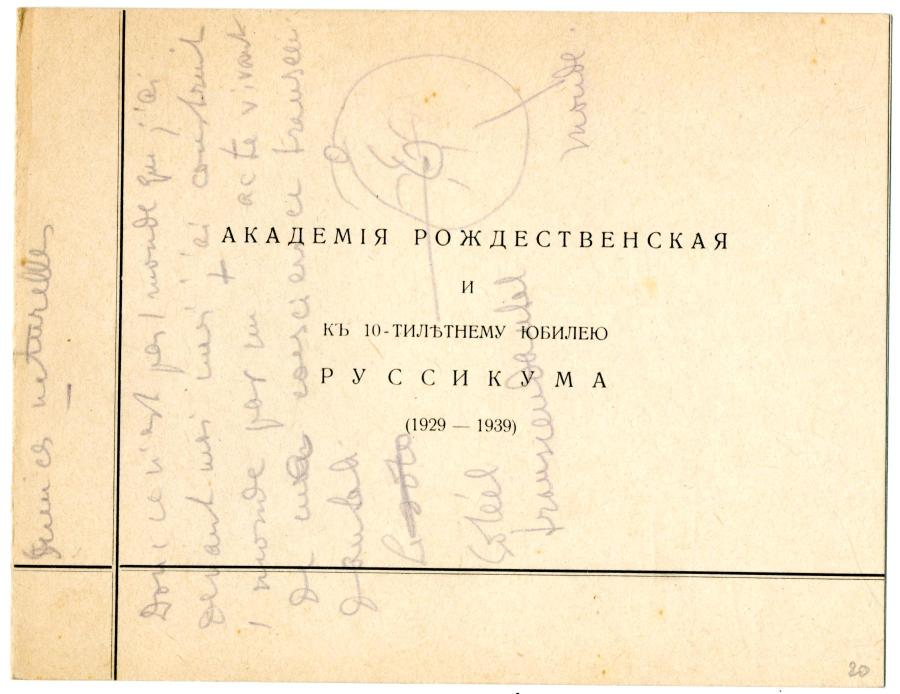 АКАДЕМІЯ РОЖДЕСТВЕНСКАЯ
И
КЪ 10-ТИЛѢТНЕМУ ЮБИЛЕЮ
РУССИКУМА
(1929 — 1939)
naturelles
Donc ce n'est pas l monde qui j'ai
devant moi mais j'ai construit
l monde par un acte vivant
de ma conscience transcen
dantale
Côté
transcendantal
monde.
20